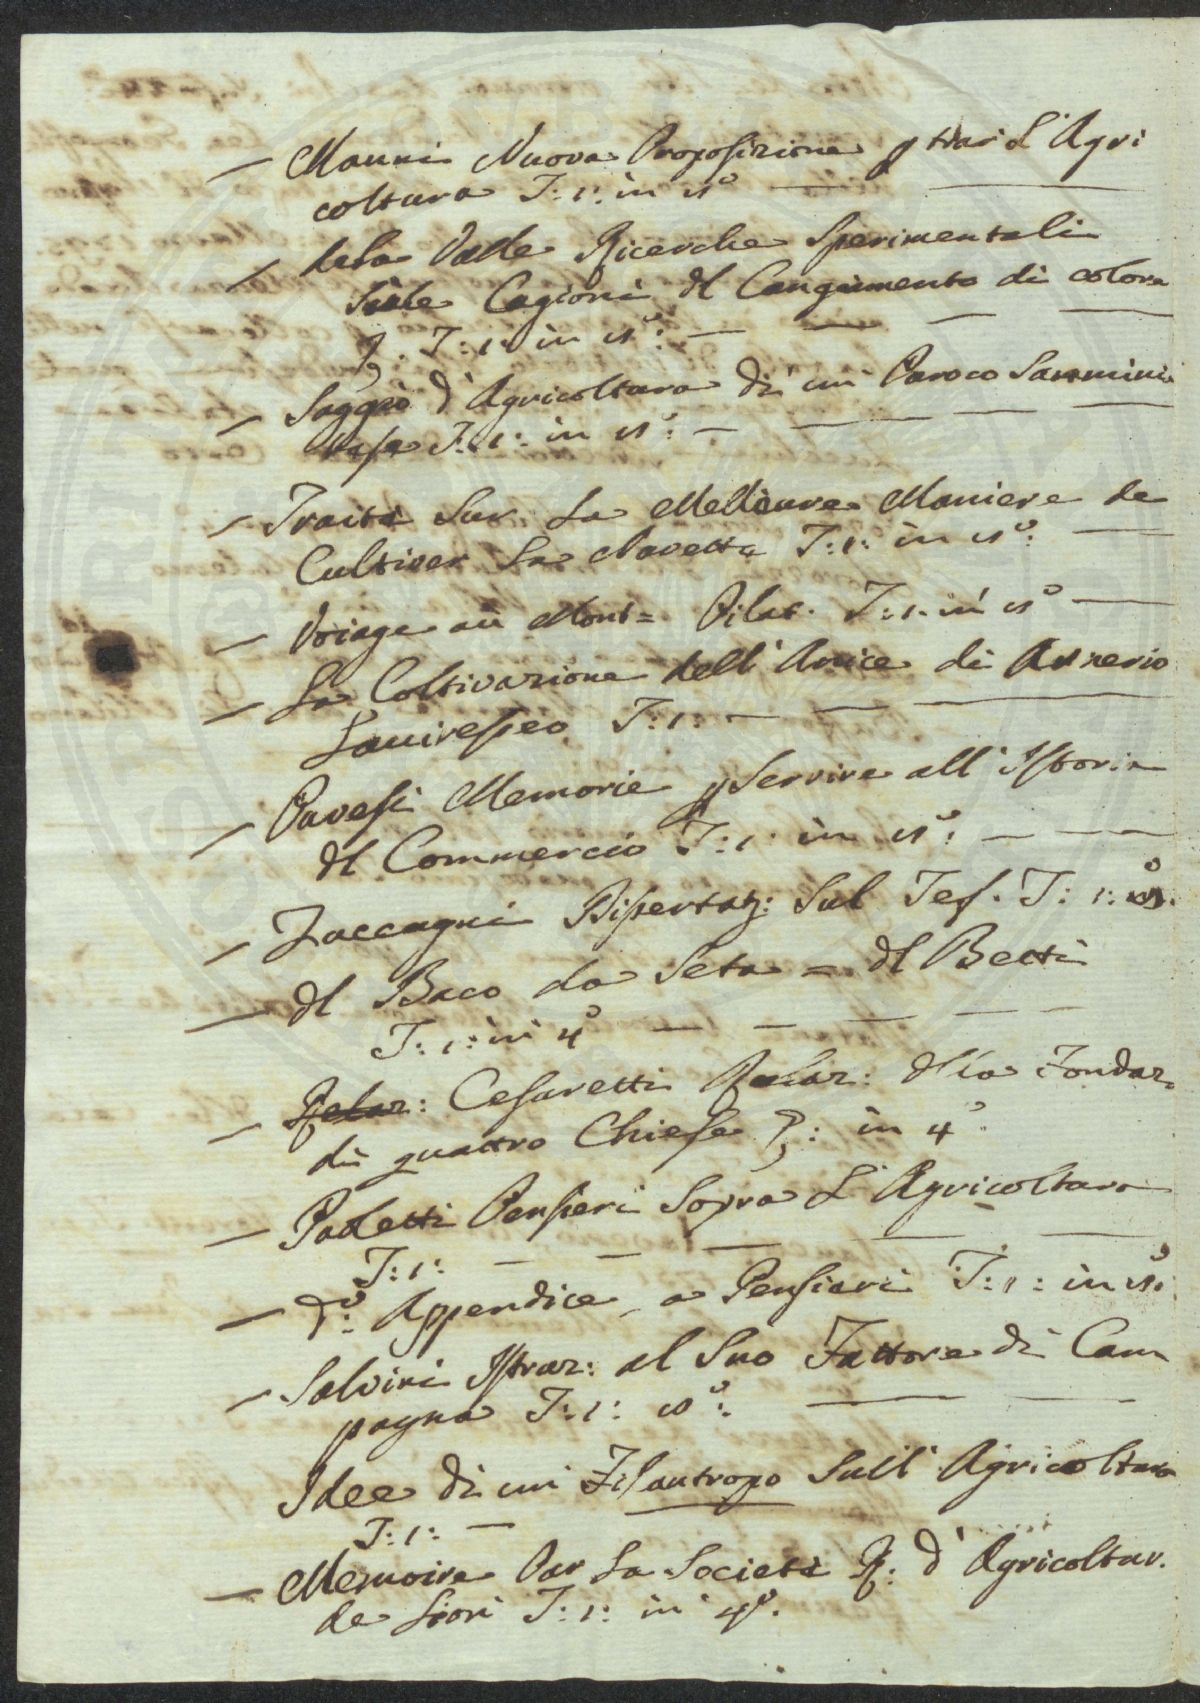 — Manni Nuova Proposizione p trar L'Agri
coltura T: 1: in 8º — —
— della Valle Ricerche Sperimentali
sulle Cagioni dl Cangiamento di colore
T: 1: in 8º: — — — —
— Saggio d'Agricoltura di un Paroco Samminia
tese T: 1: in 8º: — — — —
— Traité Sur La Mellieure Maniere de
Cultiver La Navette T: 1: in 8º: —
— Voiage au Mont = Pilat. T: 1: in 8º —
— La Coltivazione dell'Anice di
T: 1: — — —
— Pavesi Memorie p Servire all'Istoria
dl Commercio T: 1: in 8º: — — —
— Zaccagni Dissertaz: Sul Tef. T: 1: 8º.
— dl Baco da Seta = dl Betti
T: 1: in 4º — — — — —
— Relaz: Cesaretti Relaz: dlla Fondaz.
di quattro Chiese in 4º
— Paoletti Pensieri Sopra L'Agricoltura
T: 1: — — — — —
— dº: Appendice a Pensieri T: 1: in 8º:
— Salvini Istruz: al Suo Fattore di Cam
pagna T: 1: 8º: — — —
Idee di un Filantropo Sull'Agricoltura
T: 1: —
— Memoire Par La Societé R: d'Agricoltur.
de T: 1: in 4º.